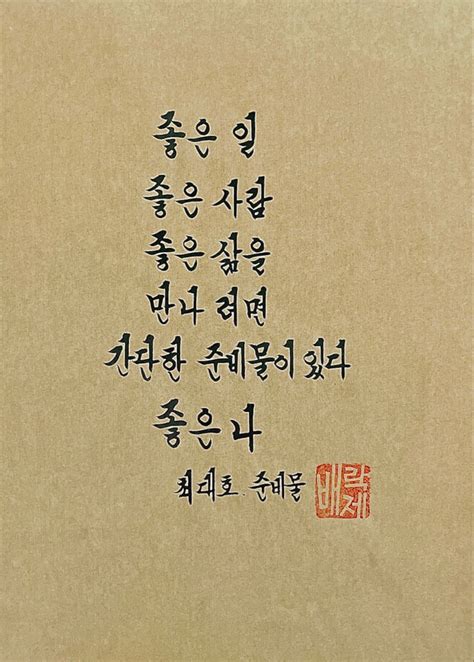 좋은 일
좋은 사람
좋은 삶을
만나려면
간단한 준비물이 있다
좋은 나
최대호. 준비물